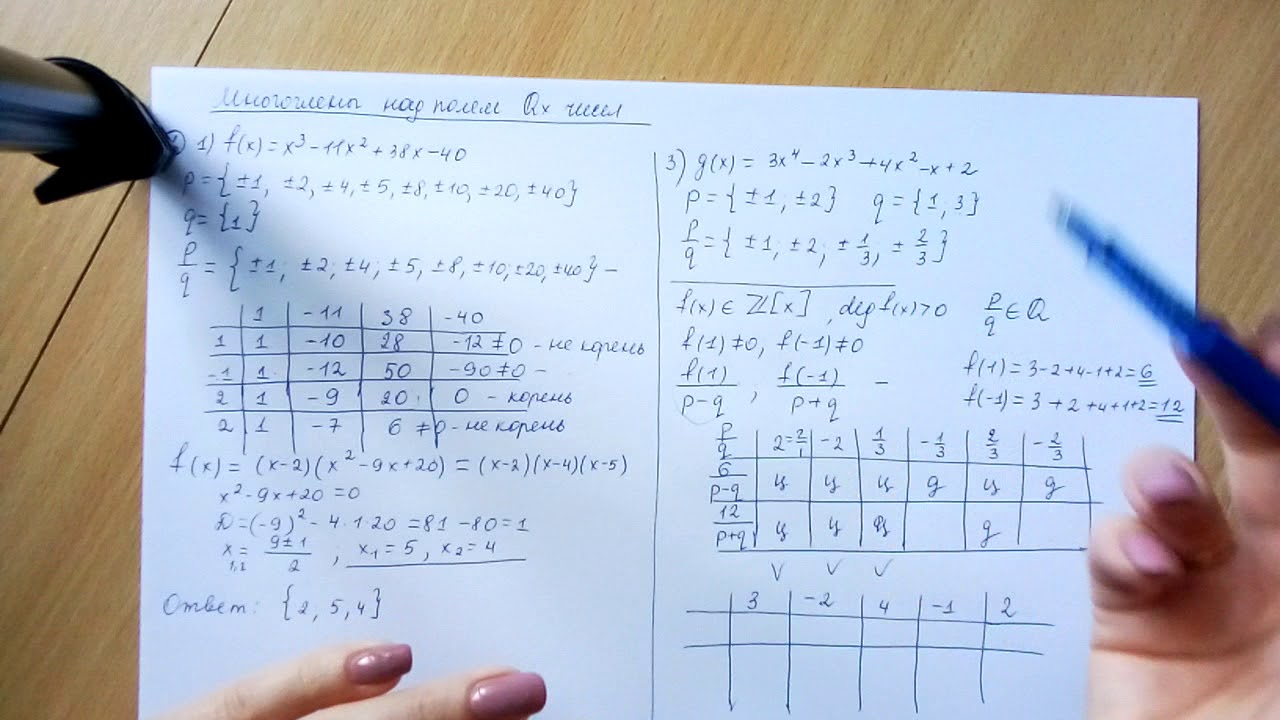 Многочлены над полем Qх чисел
1) f(x) = x³ - 11x² + 38x - 40
p = { ±1, ±2, ±4, ±5, ±8, ±10, ±20, ±40}
q = {1}
p/q = { ±1; ±2; ±4; ±5, ±8, ±10; ±20, ±40} -
1 -11 38 -40
1 1 -10 28 -12 ≠ 0 - не корень
-1 1 -12 50 -90 ≠ 0 -
2 1 -9 20 0 - корень
2 1 -7 6 ≠ 0 - не корень
f(x) = (x-2)(x² - 9x + 20) = (x-2)(x-4)(x-5)
x² - 9x + 20 = 0
D = (-9)² - 4·1·20 = 81 - 80 = 1
x₁,₂ = 9±1/2 , x₁ = 5, x₂ = 4
Ответ: {2, 5, 4}
3) g(x) = 3x⁴ - 2x³ + 4x² - x + 2
p = { ±1; ±2} q = {1, 3}
p/q = { ±1; ±2; ±1/3, ±2/3}
f(x) ∈ ℤ[x], deg f(x) > 0 p/q ∈ Q
f(1) ≠ 0, f(-1) ≠ 0
f(1)/p-q , f(-1)/p+q -
f(1) = 3-2+4-1+2 = 6
f(-1) = 3+2+4+1+2 = 12
p/q 2=2/1 -2 1/3 -1/3 2/3 -2/3
6/p-q ц ц ц д ц д
12/p+q ц ц ц д
v v v
3 -2 4 -1 2